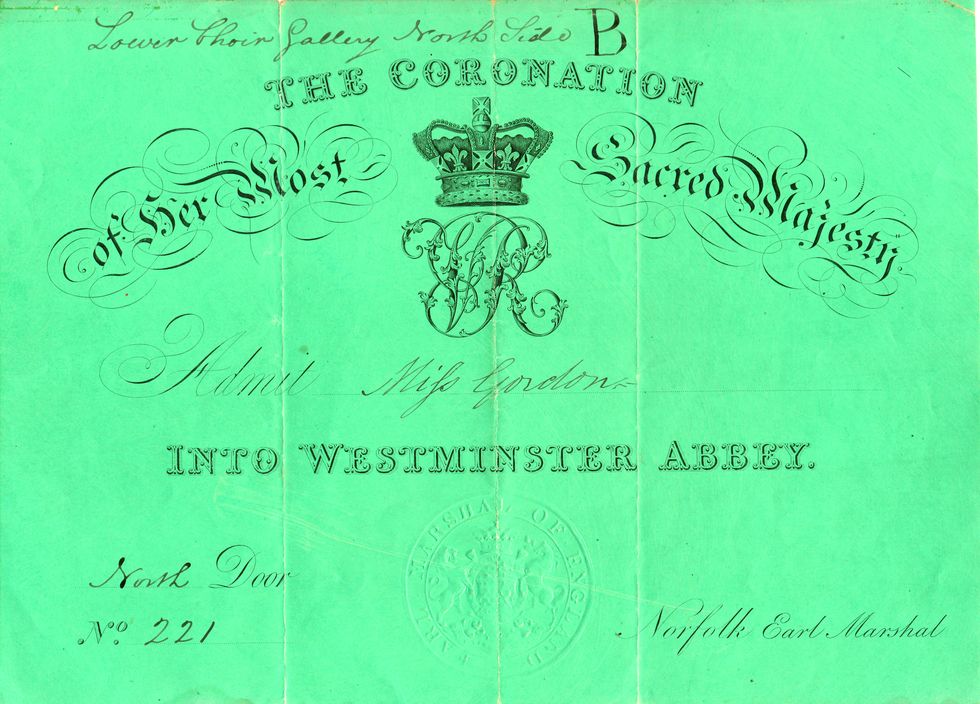 Lower Choir Gallery North Side B
THE CORONATION
of Her Most Sacred Majesty.
VR
Admit Miss Gordon
INTO WESTMINSTER ABBEY.
EARL MARSHAL OF ENGLAND
North Door
No. 221
Norfolk Earl Marshal